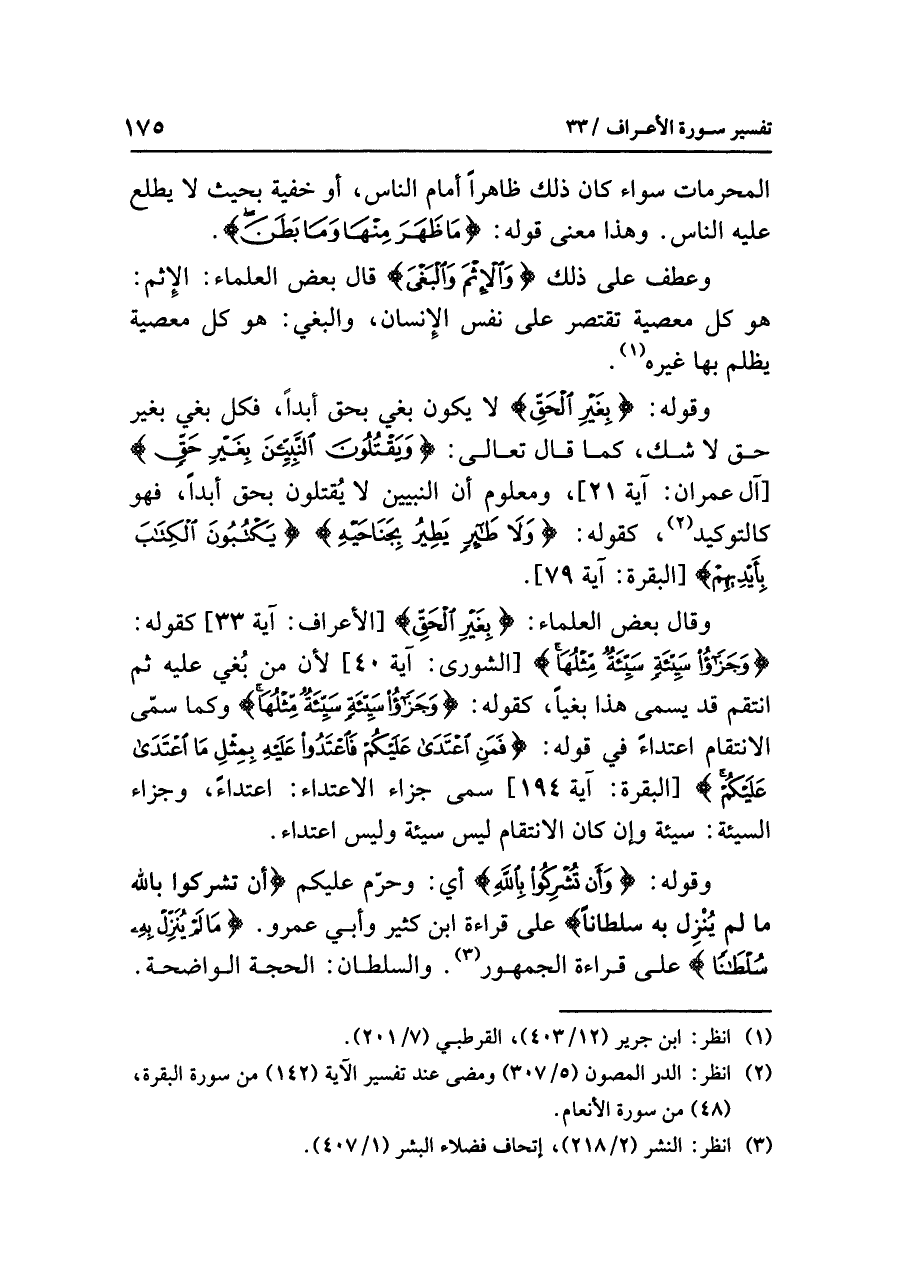 تفسير سورة الأعراف / ٣٣ ١٧٥
المحرمات سواء كان ذلك ظاهراً أمام الناس، أو خفية بحيث لا يطلع
عليه الناس. وهذا معنى قوله: ﴿مَا ظَهَرَ مِنْهَا وَمَا بَطَنَۖ﴾.
وعطف على ذلك ﴿وَٱلْإِثْمَ وَٱلْبَغْىَ﴾ قال بعض العلماء: الإِثم:
هو كل معصية تقتصر على نفس الإِنسان، والبغي: هو كل معصية
يظلم بها غيره(١).
وقوله: ﴿بِغَيْرِ ٱلْحَقِّ﴾ لا يكون بغي بحق أبداً، فكل بغي بغير
حق لا شك، كما قال تعالى: ﴿وَيَقْتُلُونَ ٱلنَّبِيِّۦنَ بِغَيْرِ حَقٍّ﴾
[آل عمران: آية ٢١]، ومعلوم أن النبيين لا يُقتلون بحق أبداً، فهو
كالتوكيد(٢)، كقوله: ﴿وَلَا طَٰٓئِرٍ يَطِيرُ بِجَنَاحَيْهِ﴾ ﴿يَكْتُبُونَ ٱلْكِتَٰبَ
بِأَيْدِيهِمْ﴾ [البقرة: آية ٧٩].
وقال بعض العلماء: ﴿بِغَيْرِ ٱلْحَقِّ﴾ [الأعراف: آية ٣٣] كقوله:
﴿وَجَزَٰٓؤُا۟ سَيِّئَةٍ سَيِّئَةٌ مِّثْلُهَاۖ﴾ [الشورى: آية ٤٠] لأن من بُغي عليه ثم
انتقم قد يسمى هذا بغياً، كقوله: ﴿وَجَزَٰٓؤُا۟ سَيِّئَةٍ سَيِّئَةٌ مِّثْلُهَاۖ﴾ وكما سمّى
الانتقام اعتداءً في قوله: ﴿فَمَنِ ٱعْتَدَىٰ عَلَيْكُمْ فَٱعْتَدُوا۟ عَلَيْهِ بِمِثْلِ مَا ٱعْتَدَىٰ
عَلَيْكُمْۚ﴾ [البقرة: آية ١٩٤] سمى جزاء الاعتداء: اعتداءً، وجزاء
السيئة: سيئة وإن كان الانتقام ليس سيئة وليس اعتداء.
وقوله: ﴿وَأَن تُشْرِكُوا۟ بِٱللَّهِ﴾ أي: وحرّم عليكم ﴿أن تشركوا بالله
ما لم يُنْزِل به سلطاناً﴾ على قراءة ابن كثير وأبي عمرو. ﴿مَا لَمْ يُنَزِّلْ بِهِۦ
سُلْطَٰنًا﴾ على قراءة الجمهور(٣). والسلطان: الحجة الواضحة.
(١) انظر: ابن جرير (٤٠٣/١٢)، القرطبي (٢٠١/٧).
(٢) انظر: الدر المصون (٣٠٧/٥) ومضى عند تفسير الآية (١٤٢) من سورة البقرة،
(٤٨) من سورة الأنعام.
(٣) انظر: النشر (٢١٨/٢)، إتحاف فضلاء البشر (٤٠٧/١).